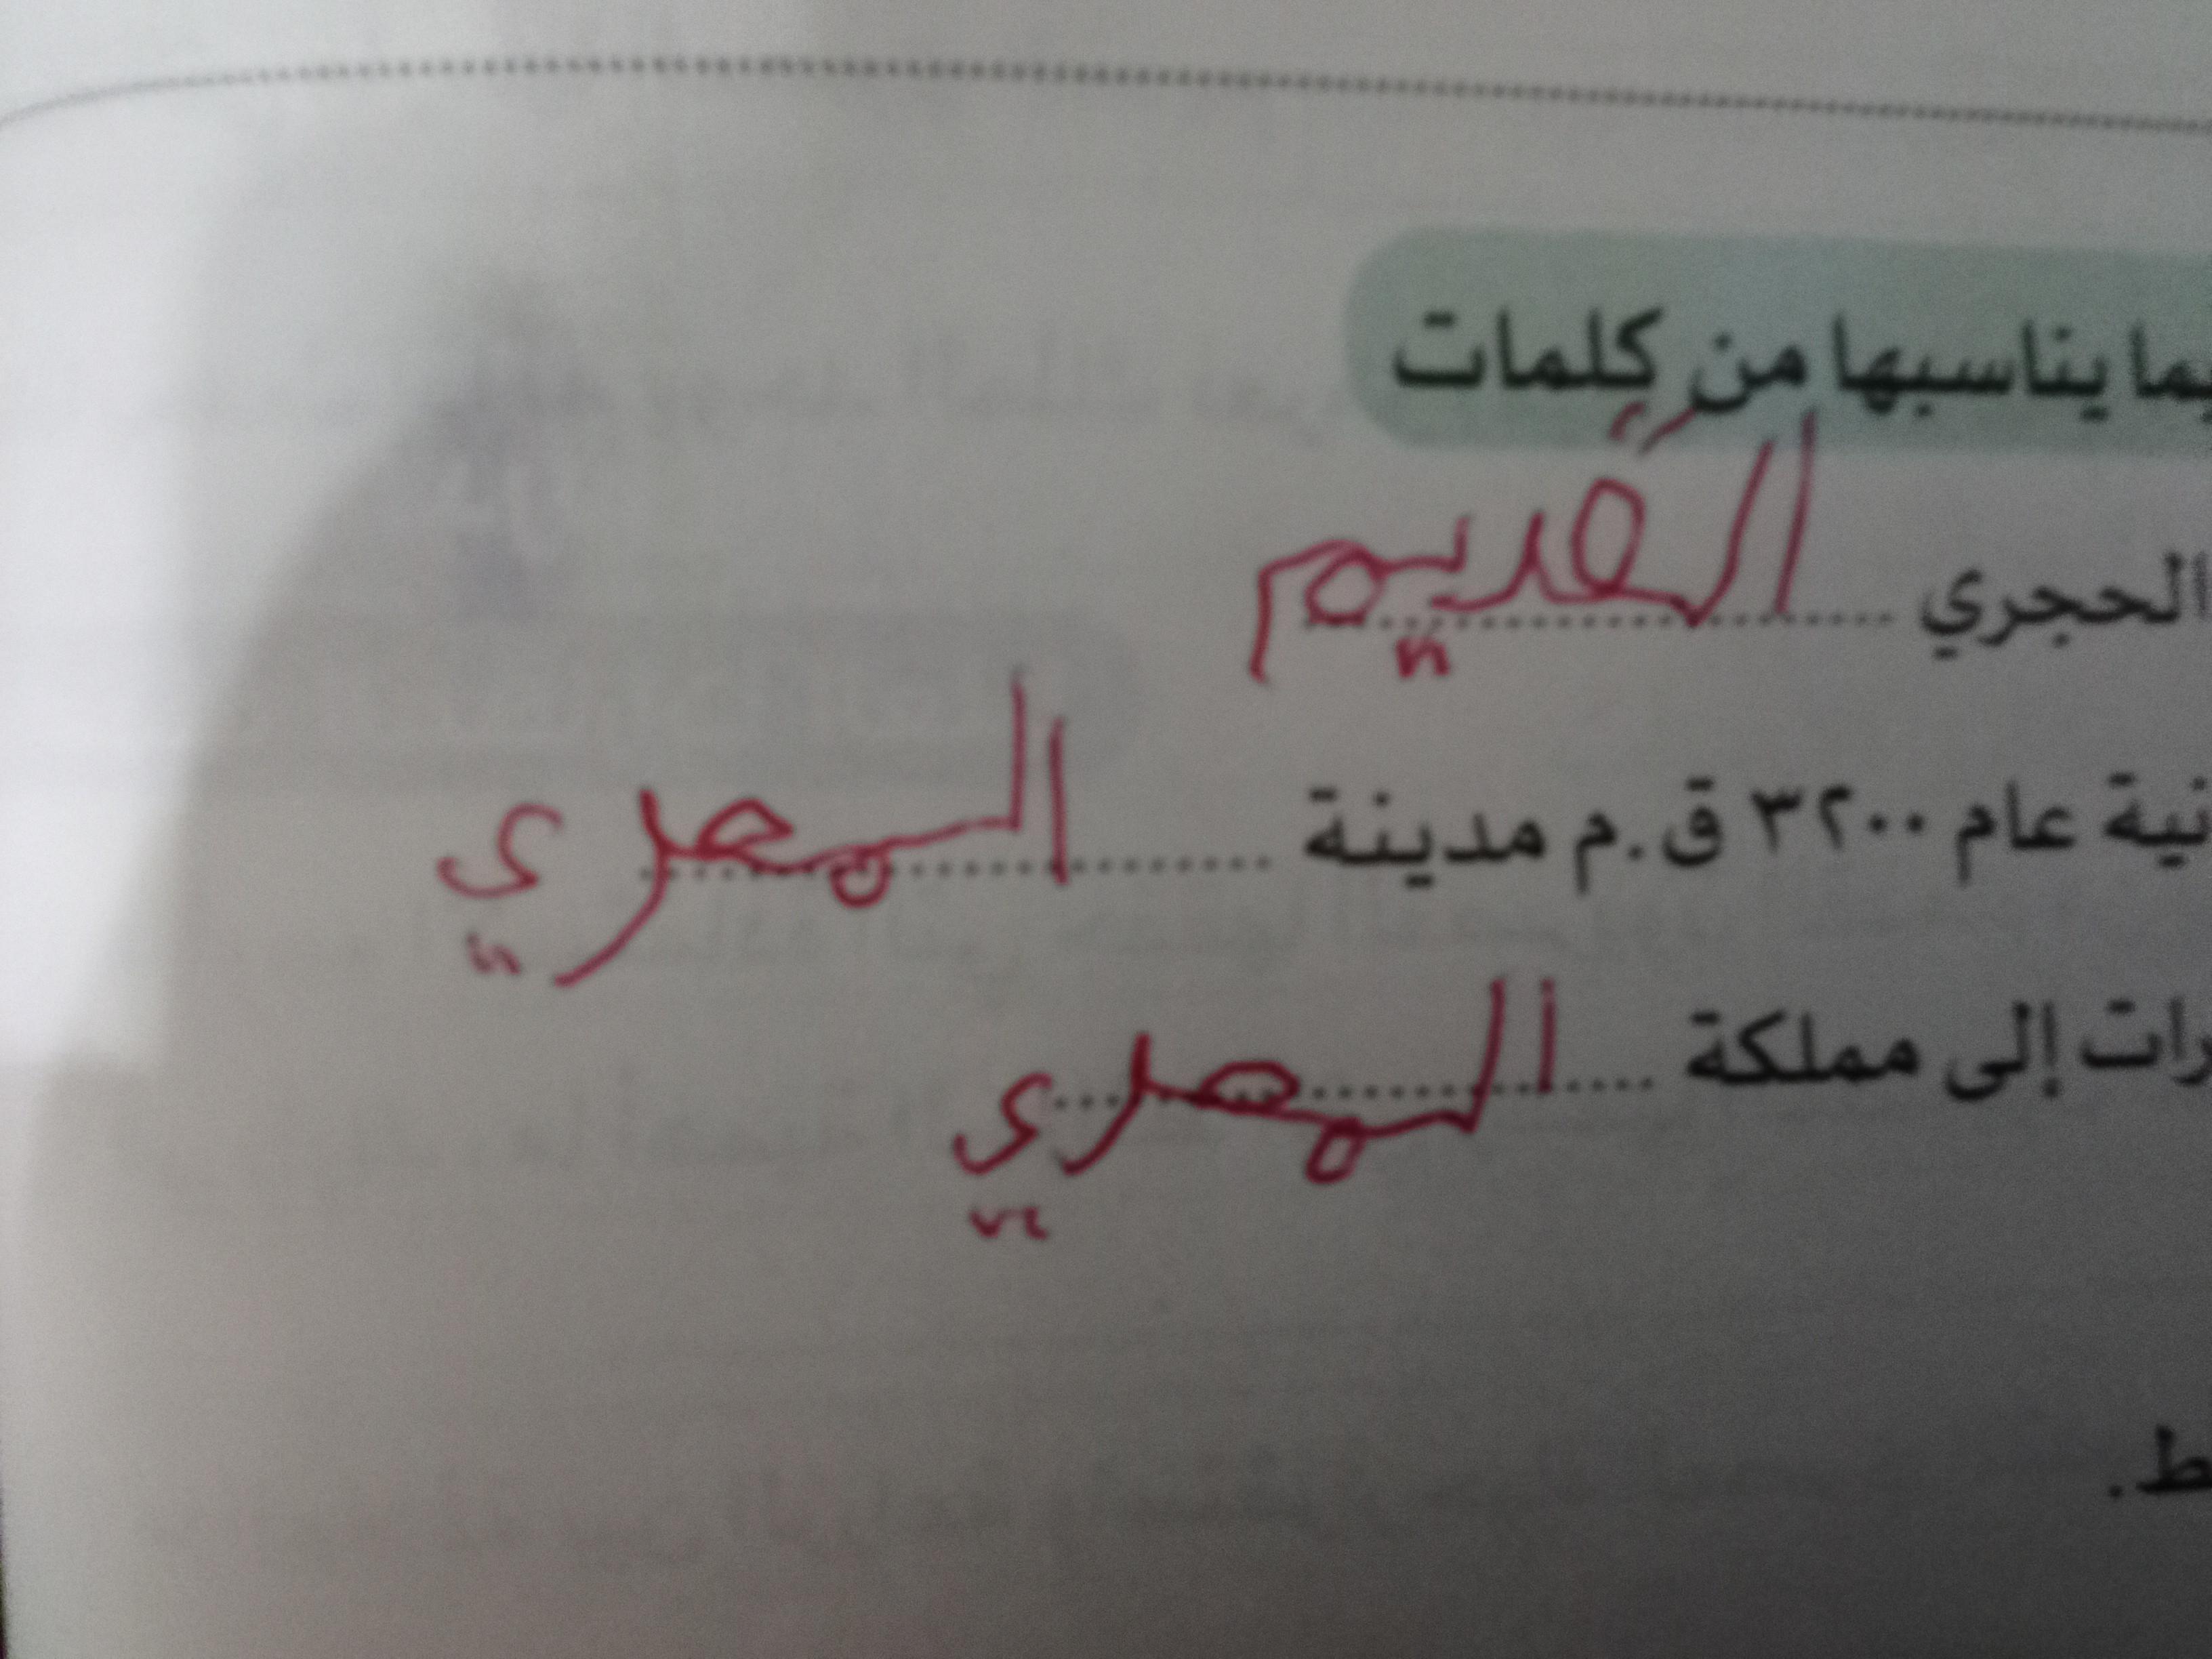 بما يناسبها من كلمات
الحجري القديم
نية عام ٣٢٠٠ ق.م مدينة المصري
رات إلى مملكة المصري
ط.